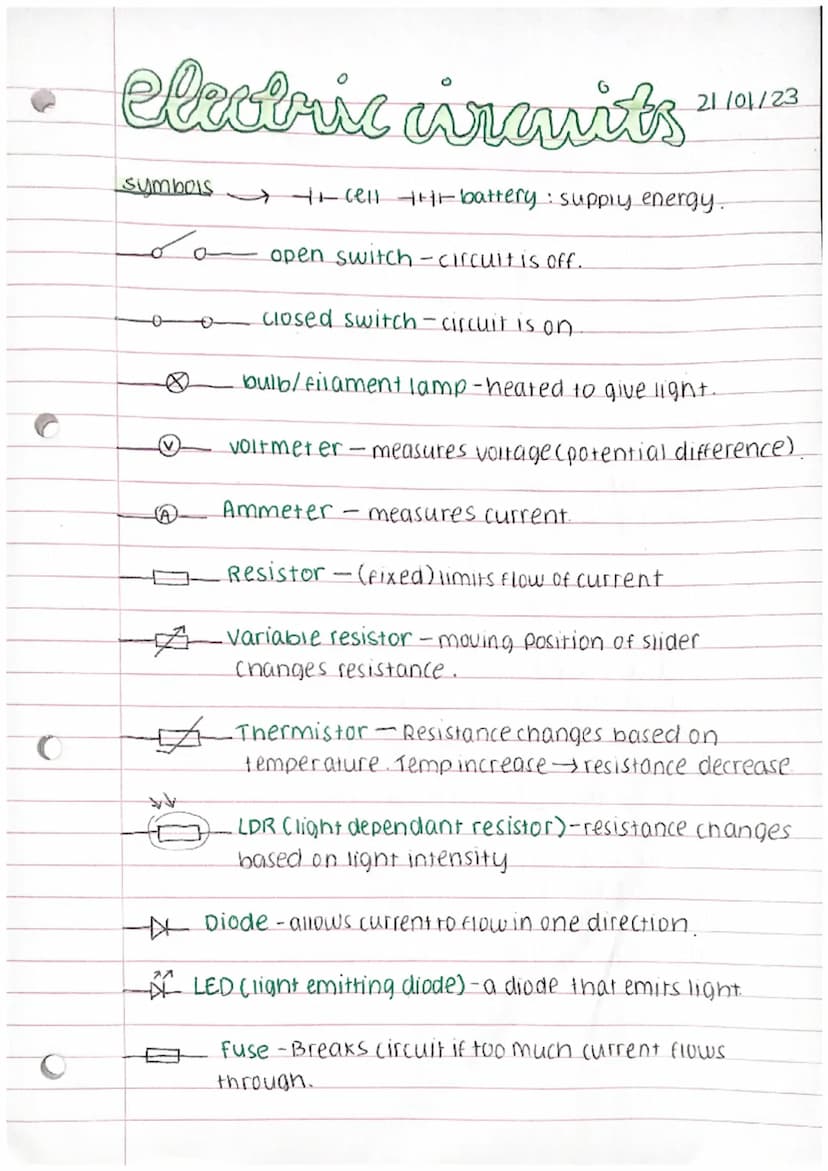 electric circuits 21/01/23
symbols → cell battery : supply energy.
open switch - circuit is off.
closed switch - circuit is on
bulb/filament lamp - heated to give light.
V voltmeter - measures voltage (potential difference).
A Ammeter - measures current.
Resistor - (fixed) limits flow of current
Variable resistor - moving position of slider
changes resistance.
Thermistor - Resistance changes based on
temperature. Temp increase → resistance decrease
LDR (light dependant resistor) - resistance changes
based on light intensity
Diode - allows current to flow in one direction.
LED (light emitting diode) - a diode that emits light
fuse - Breaks circuit if too much current flows
through.